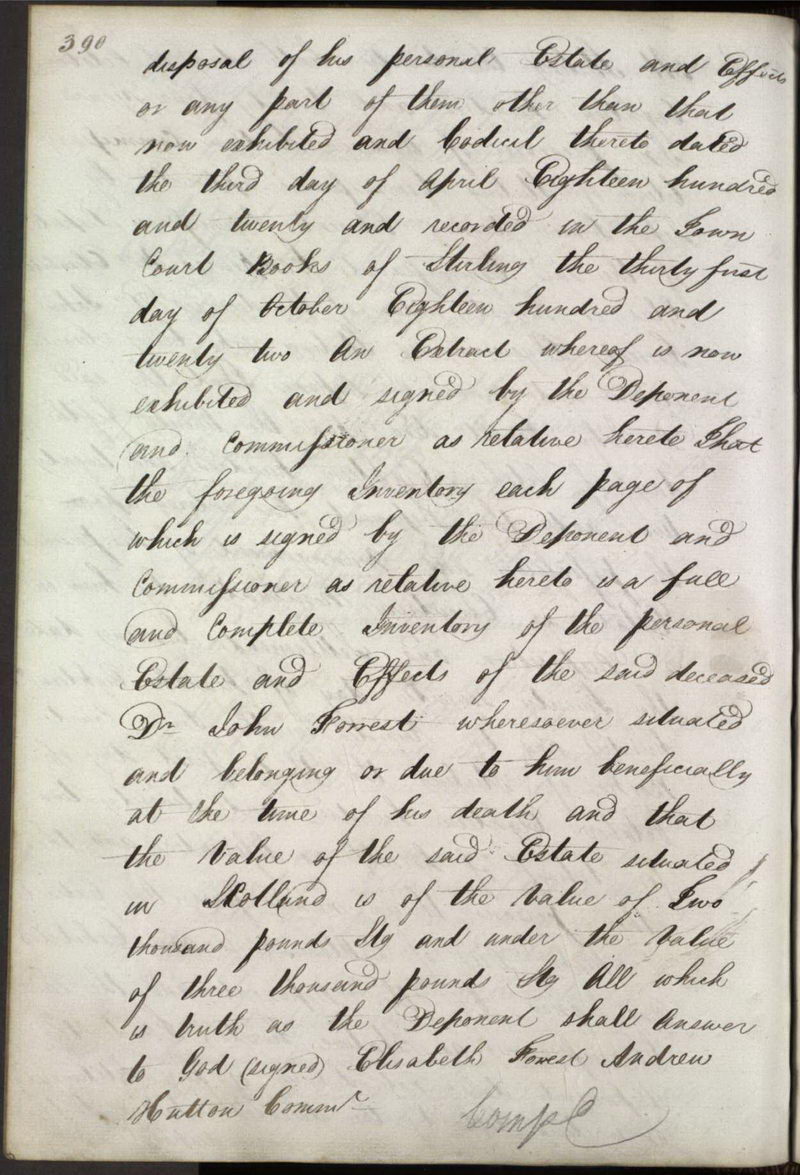 390
disposal of his personal Estate and Effects
or any part of them other than that
now exhibited and Codicil thereto dated
the third day of April Eighteen hundred
and twenty and recorded in the Town
Court Books of Stirling the thirty first
day of October Eighteen hundred and
twenty two An Extract whereof is now
exhibited and signed by the Deponent
and Commissioner as relative hereto That
the foregoing Inventory each page of
which is signed by the Deponent and
Commissioner as relative hereto is a full
and Complete Inventory of the personal
Estate and Effects of the said deceased
Dr John Forrest wheresoever situated
and belonging or due to him beneficially
at the time of his death and that
the Value of the said Estate situated
in Scotland is of the Value of Two
thousand pounds Stg and under the Value
of three thousand pounds Stg All which
is truth as the Deponent shall Answer
to God (signed) Elisabeth Forrest Andrew
Hutton Commr